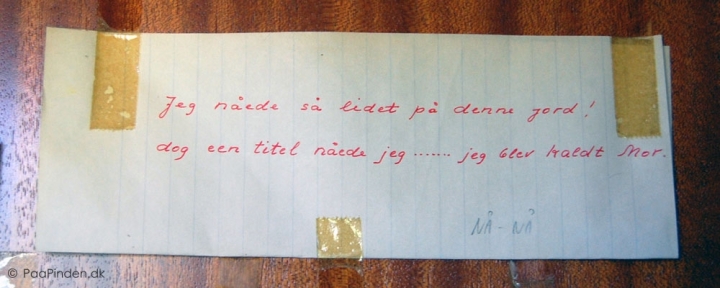 Jeg nåede så lidet på denne jord!
dog een titel nåede jeg ....... jeg blev kaldt Mor.
NÅ - NÅ
© PaaPinden.dk